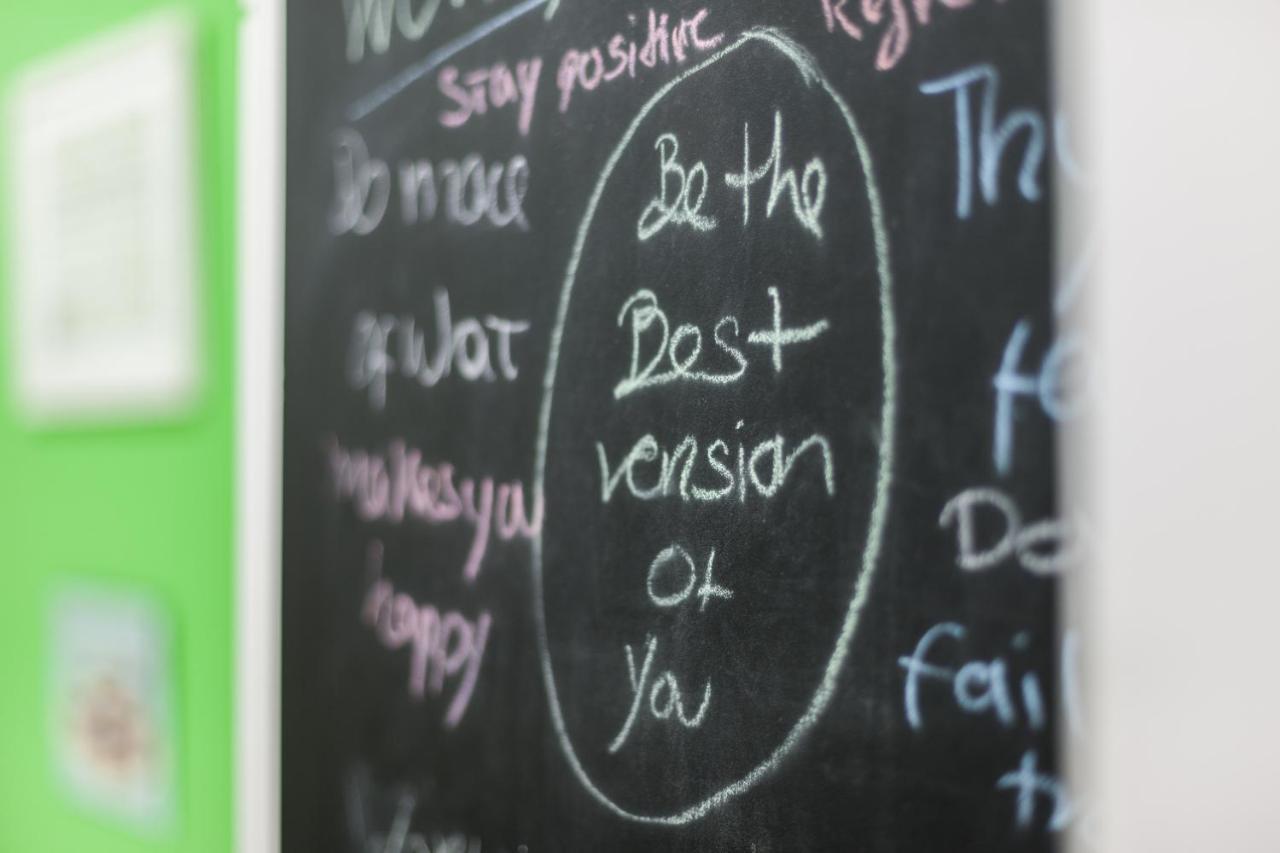 Stay positive
Do more
of wat
makes you
happy
Be the
Best
version
Of
You
Th
to
Do
fail